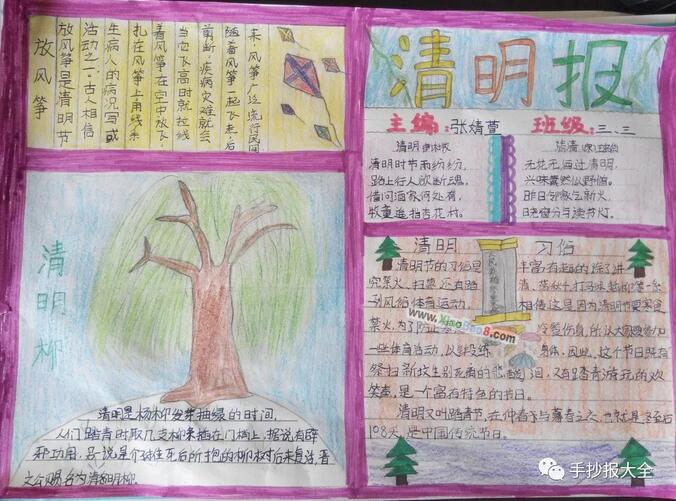 清明报
主编:张婧萱 班级:三、三
清明 唐·杜牧
清明时节雨纷纷,
路上行人欲断魂,
借问酒家何处有,
牧童遥指杏花村。
清明
无花无酒过清明,
兴味萧然似野僧。
昨日邻家乞新火,
晓窗分与读书灯。
放风筝
放风筝是清明节
活动之一。古人相信
生病人的病况写或
扎在风筝上用线系
着风筝在空中放飞:
当它飞高时就拉线
剪断,疾病灾难就会
随着风筝一起飞走,后
来,风筝广泛流行民间
清明柳
清明是杨柳发芽抽绿的时间,
人们踏青时取几支柳条插在门楣上,据说有辟
邪功用,
文公赐名为清明柳.
清明 习俗
清明节的习俗是丰富有趣的,除了讲
究禁火、扫墓,还有踏
列风俗体育运动。相传这是因为清明节要寒食
禁火,为了防止 冷餐伤身,所以大家要参加
一些体育活动,以锻炼身体,因此,这个节日既有
祭扫新坟生别死离的悲 泪,又有踏青游玩的欢
笑声,是一个富有特色的节日。
清明又叫踏青节,在仲春与暮春之交,也就是冬至后
108天,是中国传统节日。
www.XiaoBao8.com
手抄报大全